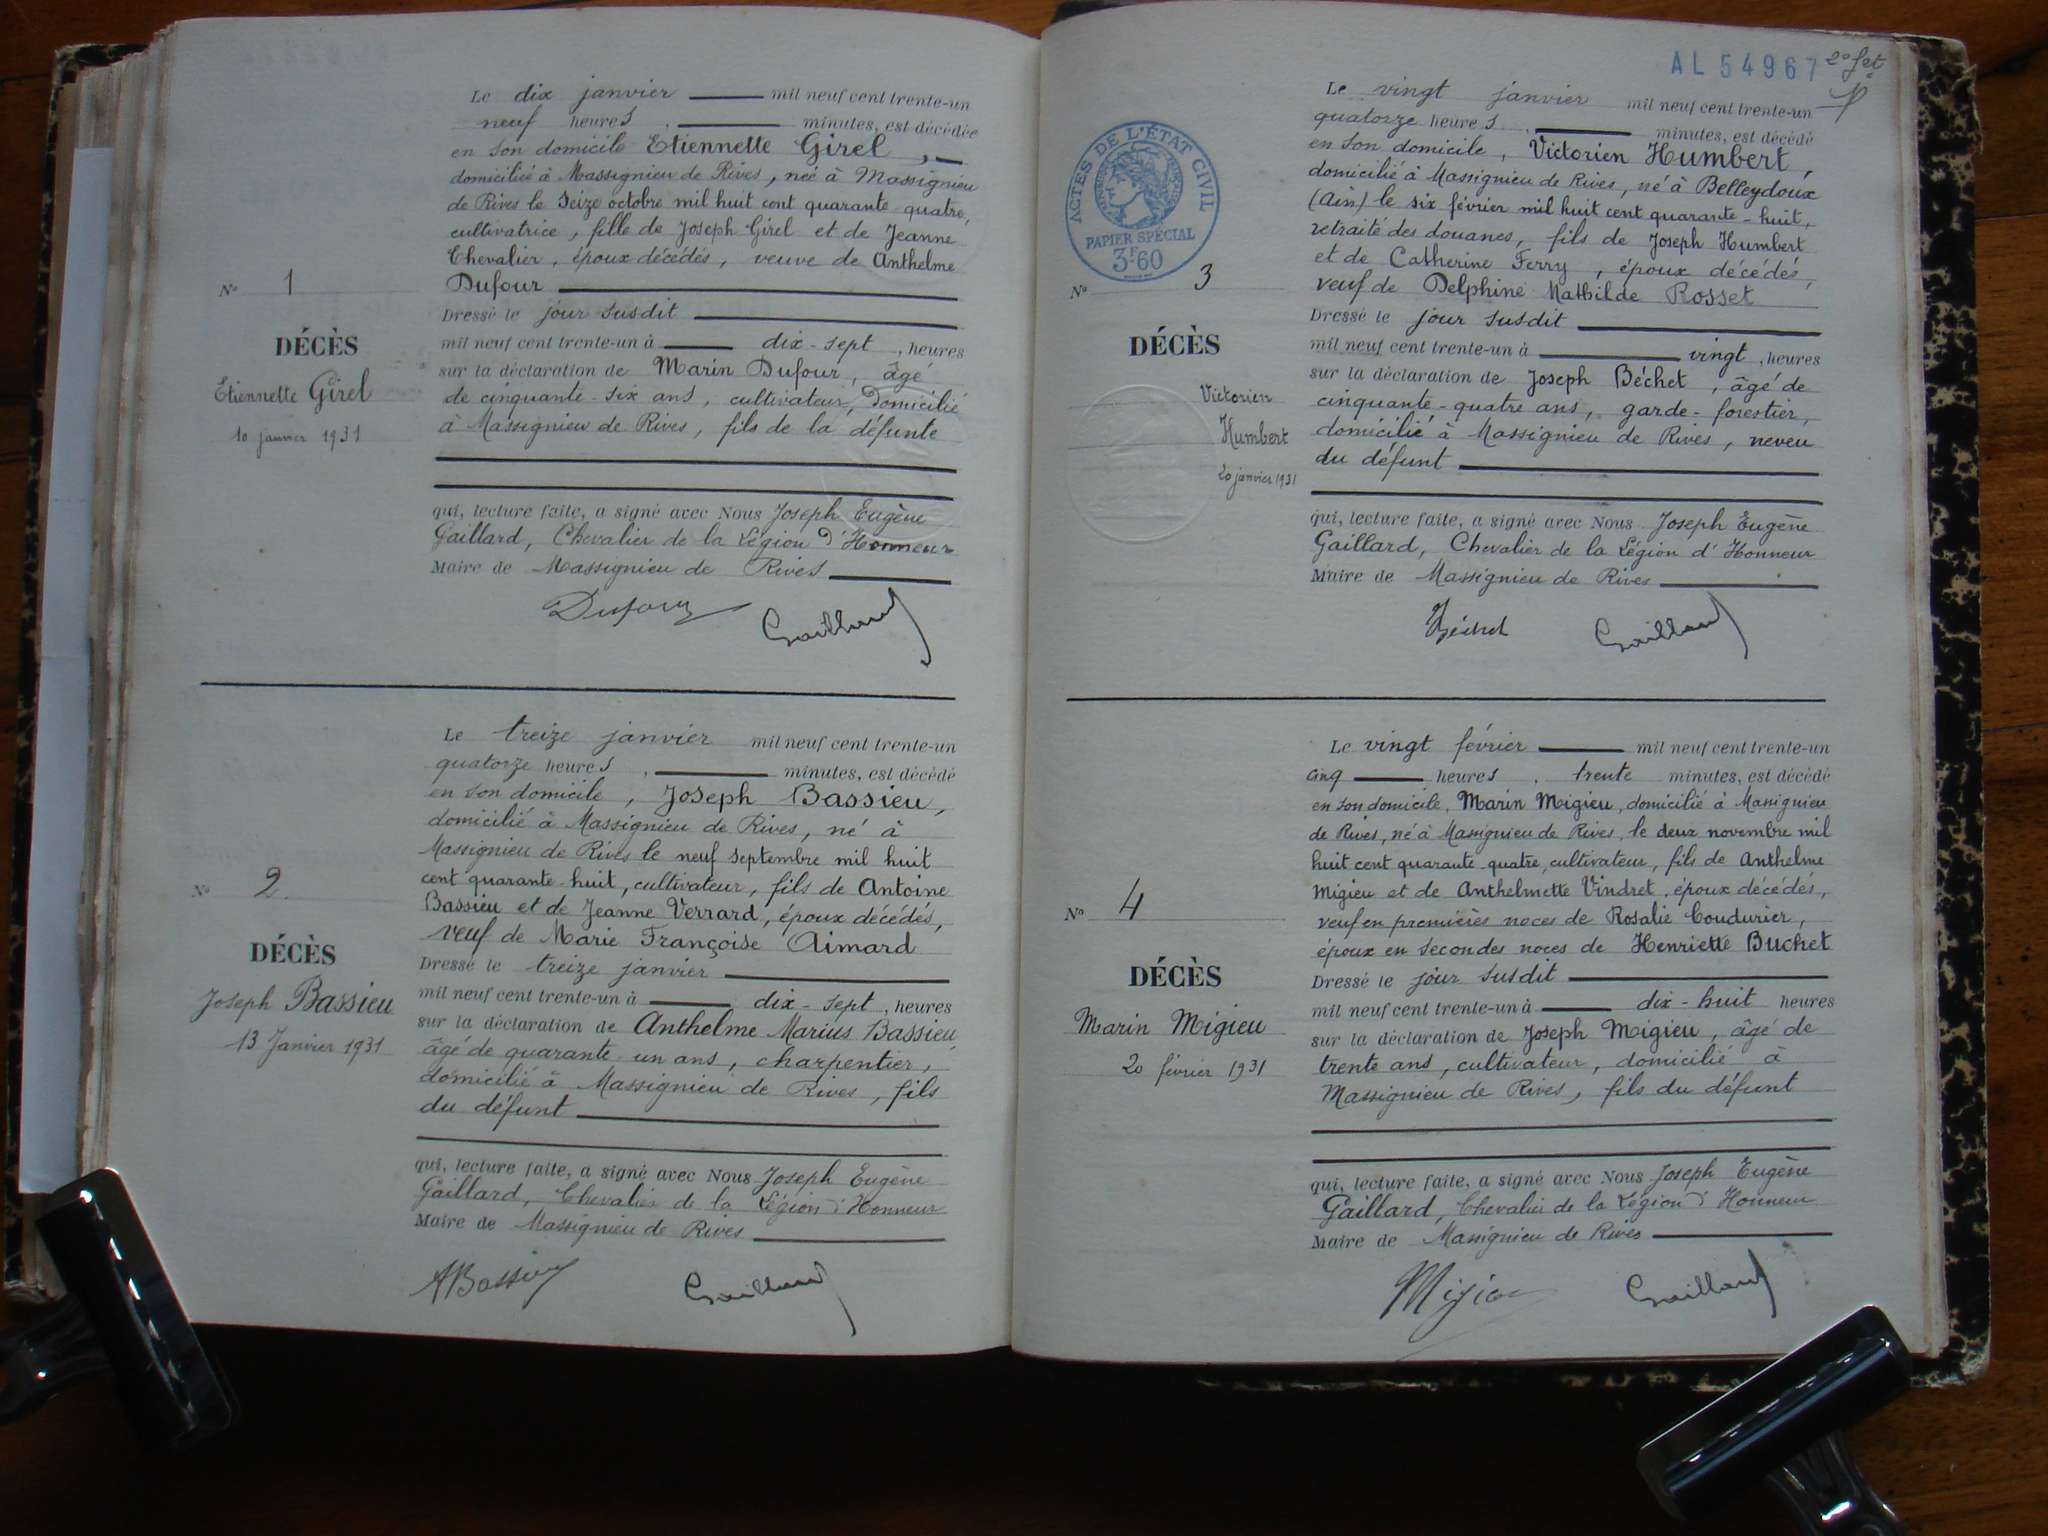 Le dix janvier mil neuf cent trente-un
neuf heures, minutes, est décédée
en son domicile Etiennette Girel,
domiciliée à Massignieu de Rives, née à Massignieu
de Rives le seize octobre mil huit cent quarante-quatre,
cultivatrice, fille de Joseph Girel et de Jeanne
Chevalier, époux décédés, veuve de Anthelme
Dufour
Dressé le jour susdit
mil neuf cent trente-un à dix-sept, heures
sur la déclaration de Marin Dufour, âgé
de cinquante-six ans, cultivateur, domicilié
à Massignieu de Rives, fils de la défunte
qui, lecture faite, a signé avec Nous Joseph Eugène
Gaillard, Chevalier de la Légion d'Honneur
Maire de Massignieu de Rives
Dufour Gaillard
N° 1
DÉCÈS
Etiennette Girel
10 janvier 1931
Le treize janvier mil neuf cent trente-un
quatorze heures, minutes, est décédé
en son domicile, Joseph Bassieu,
domicilié à Massignieu de Rives, né à
Massignieu de Rives le neuf septembre mil huit
cent quarante-huit, cultivateur, fils de Antoine
Bassieu et de Jeanne Verrard, époux décédés,
veuf de Marie Françoise Aimard
Dressé le treize janvier
mil neuf cent trente-un à dix-sept, heures
sur la déclaration de Anthelme Marius Bassieu,
âgé de quarante-un ans, charpentier,
domicilié à Massignieu de Rives, fils
du défunt
qui, lecture faite, a signé avec Nous Joseph Eugène
Gaillard, Chevalier de la Légion d'Honneur
Maire de Massignieu de Rives
ABassieu Gaillard
N° 2.
DÉCÈS
Joseph Bassieu
13 Janvier 1931
AL 54967
ACTES DE L'ÉTAT CIVIL
PAPIER SPÉCIAL
3F60
Le vingt janvier mil neuf cent trente-un
quatorze heures, minutes, est décédé
en son domicile, Victorien Humbert,
domicilié à Massignieu de Rives, né à Belleydoux
(Ain) le six février mil huit cent quarante-huit,
retraité des douanes, fils de Joseph Humbert
et de Catherine Ferry, époux décédés,
veuf de Delphine Mathilde Rosset
Dressé le jour susdit
mil neuf cent trente-un à vingt, heures
sur la déclaration de Joseph Béchet, âgé de
cinquante-quatre ans, garde-forestier,
domicilié à Massignieu de Rives, neveu
du défunt
qui, lecture faite, a signé avec Nous Joseph Eugène
Gaillard, Chevalier de la Légion d'Honneur
Maire de Massignieu de Rives
Béchet Gaillard
N° 3
DÉCÈS
Victorien
Humbert
20 janvier 1931
Le vingt février mil neuf cent trente-un
cinq heures, trente minutes, est décédé
en son domicile, Marin Migieu, domicilié à Massignieu
de Rives, né à Massignieu de Rives, le deux novembre mil
huit cent quarante-quatre, cultivateur, fils de Anthelme
Migieu et de Anthelmette Vindret, époux décédés,
veuf en premières noces de Rosalie Coudurier,
époux en secondes noces de Henriette Buchet
Dressé le jour susdit
mil neuf cent trente-un à dix-huit heures
sur la déclaration de Joseph Migieu, âgé de
trente ans, cultivateur, domicilié à
Massignieu de Rives, fils du défunt
qui, lecture faite, a signé avec Nous Joseph Eugène
Gaillard, Chevalier de la Légion d'Honneur
Maire de Massignieu de Rives
Migieu Gaillard
N° 4
DÉCÈS
Marin Migieu
20 février 1931